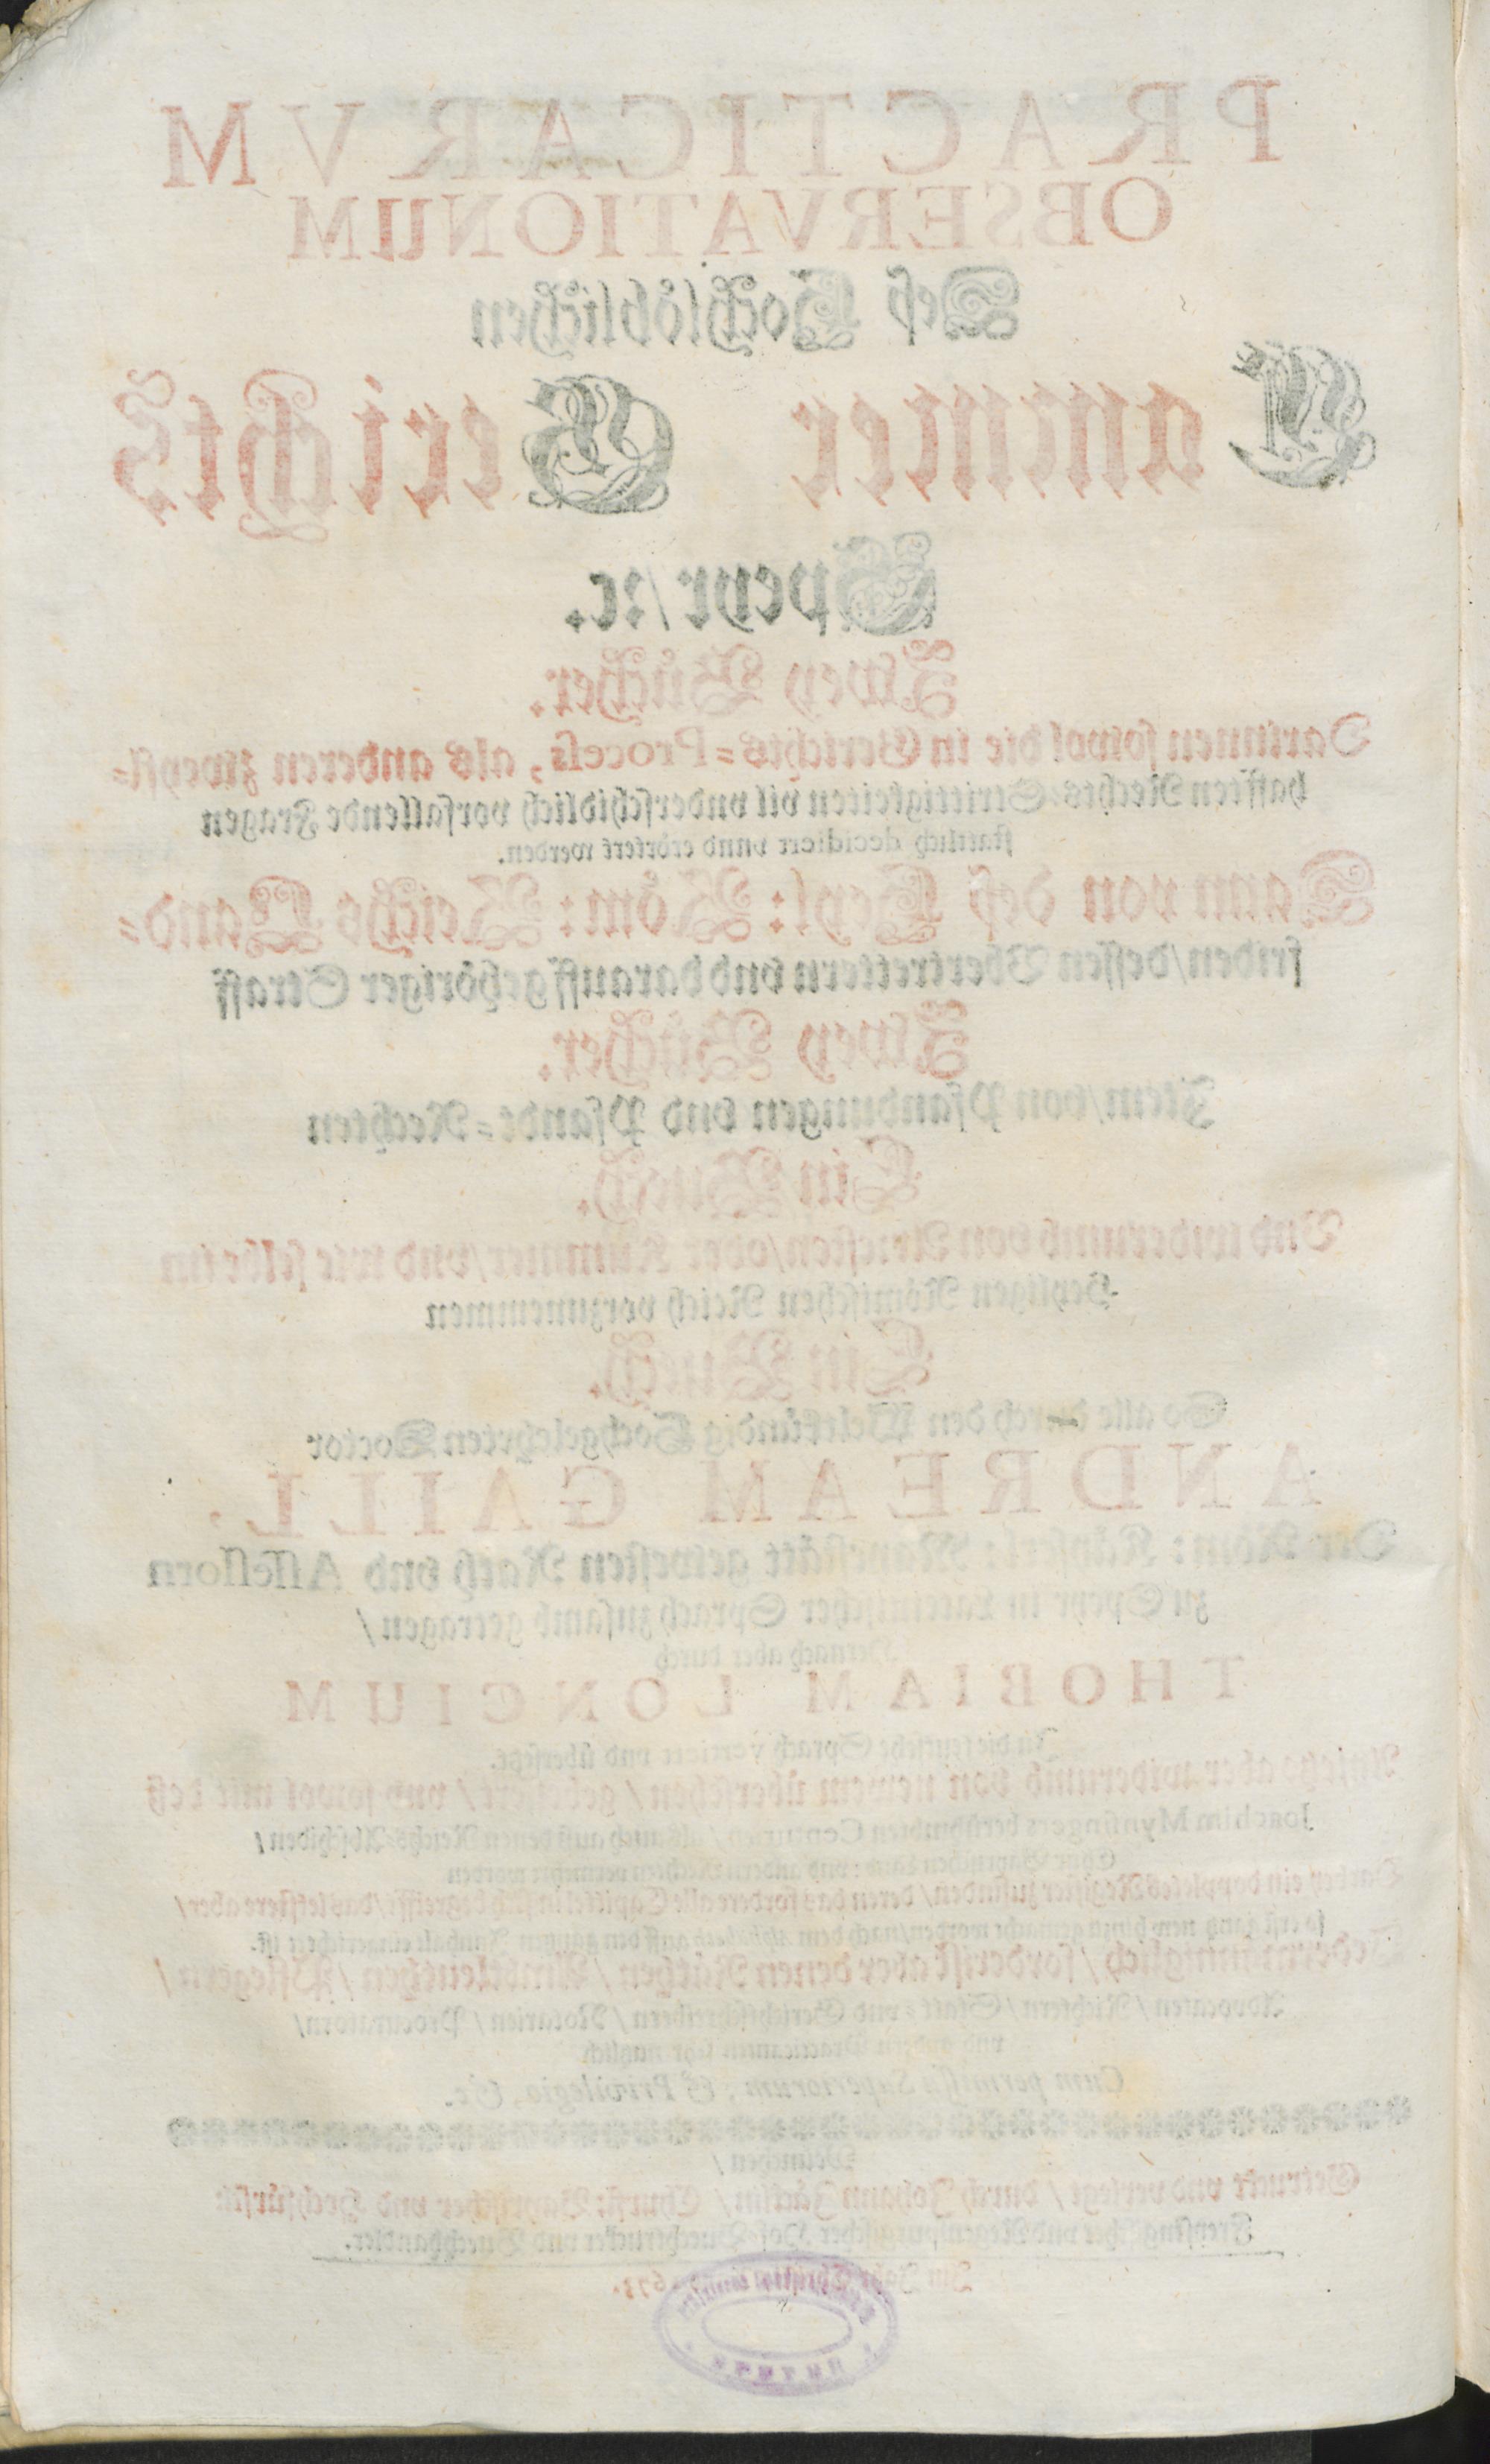 PRACTICARVM
OBSERVATIONUM
Deß Hochlöblichen
Cammer Gerichts
Speyr/ꝛc.
Zwey Bücher.
Darinnen sowol die in Gerichts-Process, als anderen zweyfl-
hafften Rechts-Strittigkeiten vil vnderschidlich vorfallende Fragen
stattlich decidiert vnnd erörtert werden.
Dann von deß Heyl: Röm: Reichs Land-
friden/dessen Vbertrettern vnd darauff gehöriger Straff
Zwey Bücher.
Item/von Pfandungen vnd Pfandt-Rechten
Ein Buch.
Vnd widerumb von Arresten/oder Kummer/vnd wie selbe im
Heyligen Römischen Reich vorzunemmen
Ein Buch.
So alle durch den Hochgelehrten Doctor
ANDREAM GAILL.
Der Röm: Käyserl: Mayestätt gewesten Rath vnd Assessorn
zu Speyr in Lateinischer Sprach zusamb getragen/
Hernach aber durch
THOBIAM LONCIUM
in die teutsche Sprach vertiert vnd übersetzt.
aber widerumb von newem übersehen/gebessert/vnd sowol mit deß
Joachim Mynsingers berühmbten Centurien/als auch auß denen Reichs-Abschiden/
vermehrt worden
ein doppletes Register zufinden/deren das fordere alle Capittel in sich begreifft/das letstere aber/
so erst jetzo new hinzu gemacht worden/nach dem Alphabeth auff den gantzen Innhalt eingerichtet ist.
Jedermänniglich/forderist aber denen Räthen/Ambtleuthen/Pflegern/
Advocaten/Richtern/Statt- vnd Gerichtschreibern/Notarien/Procuratorn/
vnd andern Practicanten sehr nutzlich
Cum permissu Superiorum, & Privilegio, &c.
München/
Getruckt vnd verlegt/durch Johann Jäcklin/Churfl: Bayrischer vnd Hochfürstl:
Freysingischer vnd Regenspurgischer Hof-Buechtrucker vnd Buechhandler.
Im Jahr Christi 1673.